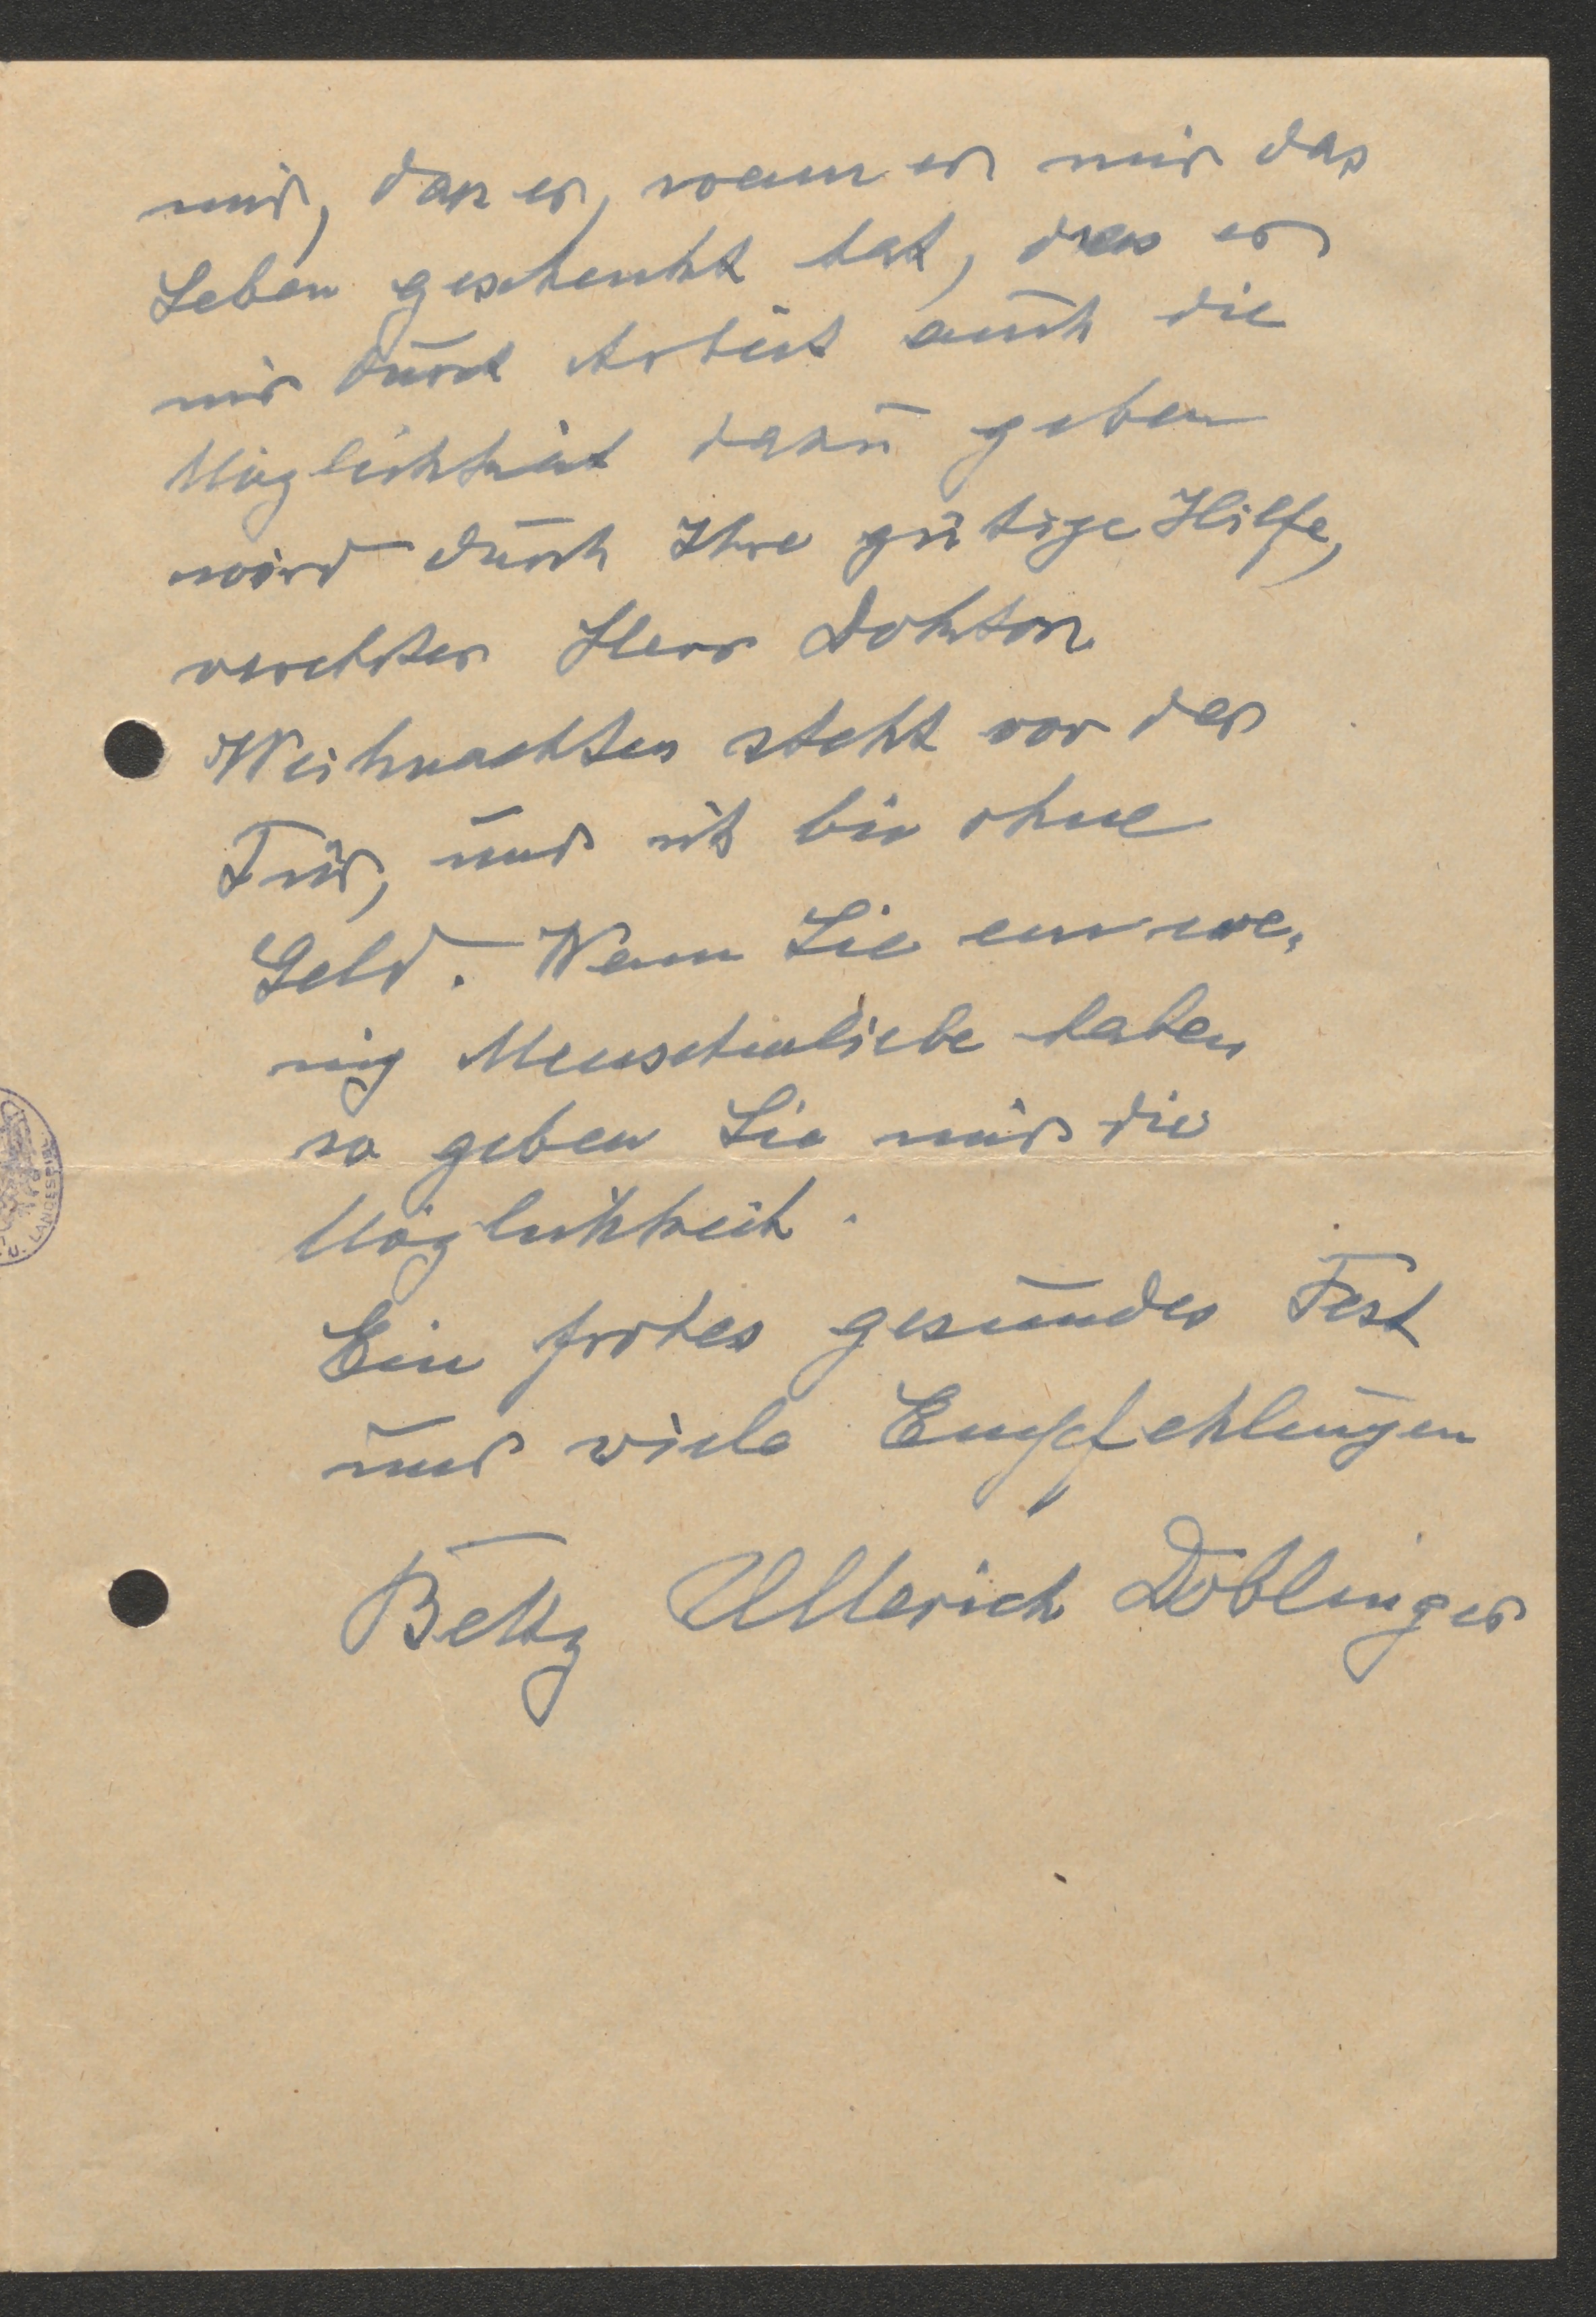 mir, dass er, wenn er mir das
Leben geschenkt hat, dass er
mir durch Arbeit auch die
Möglichkeit dazu geben
wird durch Ihre gütige Hilfe,
verehrter Herr Doktor.
Weihnachten steht vor der
Tür, und ich bin ohne
Geld. Wenn Sie ein we-
nig Menschenliebe haben
so geben Sie mir die
Möglichkeit.
Ein frohes gesundes Fest
und viele Empfehlungen
Betty Ullerich Döblinger
U. LANDES